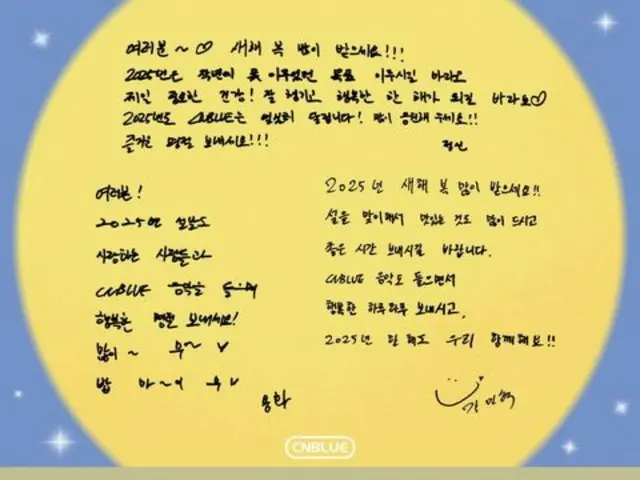 여러분~♡ 새해 복 많이 받으세요!!!
2025년은 작년에 못 이루었던 목표 이루시길 바라고
제일 중요한 건강! 잘 챙기고 행복한 한 해가 되길 바라요♡
2025년도 CNBLUE는 열심히 달립니다! 많이 응원해 주세요!!
즐거운 명절 보내세요!!!
정신
여러분!
2025년 설날도
사랑하는 사람들과
CNBLUE 음악을
행복한 명절 보내세요!
많이~
용화
2025년 새해 복 많이 받으세요!!
설을 맞이해서 맛있는 것도 많이 드시고
좋은 시간 보내시길 바랍니다.
CNBLUE 음악도 들으면서
행복한 하루하루 보내시고,
2025년 한 해도 우리 함께해요!!
강민혁
CNBLUE